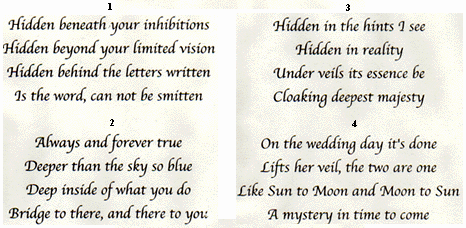 1
Hidden beneath your inhibitions
Hidden beyond your limited vision
Hidden behind the letters written
Is the word, can not be smitten
2
Always and forever true
Deeper than the sky so blue
Deep inside of what you do
Bridge to there, and there to you:
3
Hidden in the hints I see
Hidden in reality
Under veils its essence be
Cloaking deepest majesty
4
On the wedding day it's done
Lifts her veil, the two are one
Like Sun to Moon and Moon to Sun
A mystery in time to come